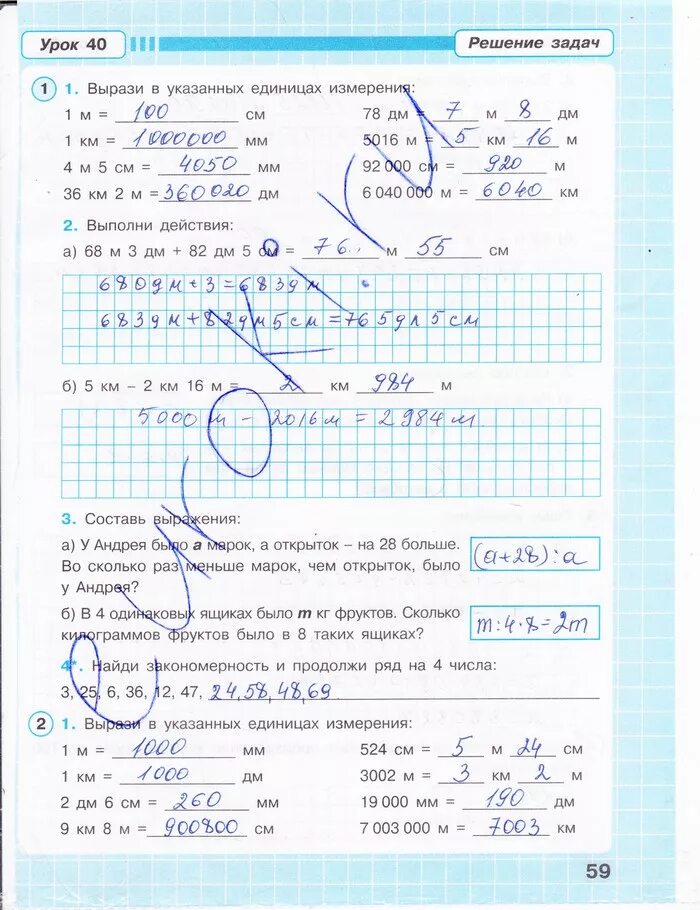 Урок 40
Решение задач
1 1. Вырази в указанных единицах измерения:
1 м = 100 см 78 дм = 7 м 8 дм
1 км = 1000000 мм 5016 м = 5 км 16 м
4 м 5 см = 4050 мм 92 000 см = 920 м
36 км 2 м = 360020 дм 6 040 000 м = 6040 км
2. Выполни действия:
а) 68 м 3 дм + 82 дм 5 см = 76 м 55 см
680дм + 3 = 683дм
683дм + 82дм 5 см = 765дм 5 см
б) 5 км – 2 км 16 м = 2 км 984 м
5000 м - 2016 м = 2984 м
3. Составь выражения:
а) У Андрея было а марок, а открыток – на 28 больше.
Во сколько раз меньше марок, чем открыток, было
у Андрея?
(а+28):а
б) В 4 одинаковых ящиках было m кг фруктов. Сколько
килограммов фруктов было в 8 таких ящиках?
m:4·8=2m
4*. Найди закономерность и продолжи ряд на 4 числа:
3, 25, 6, 36, 12, 47, 24,58,48,69
2 1. Вырази в указанных единицах измерения:
1 м = 1000 мм 524 см = 5 м 24 см
1 км = 1000 дм 3002 м = 3 км 2 м
2 дм 6 см = 260 мм 19 000 мм = 190 дм
9 км 8 м = 900800 см 7 003 000 м = 7003 км
59